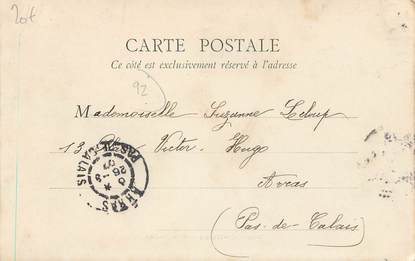 20f
CARTE POSTALE
Ce côté est exclusivement réservé à l'adresse
92
Mademoiselle Suzanne Leloup
13 Place Victor-Hugo
Arras
(Pas-de-Calais)
ARRAS
PAS-DE-CALAIS